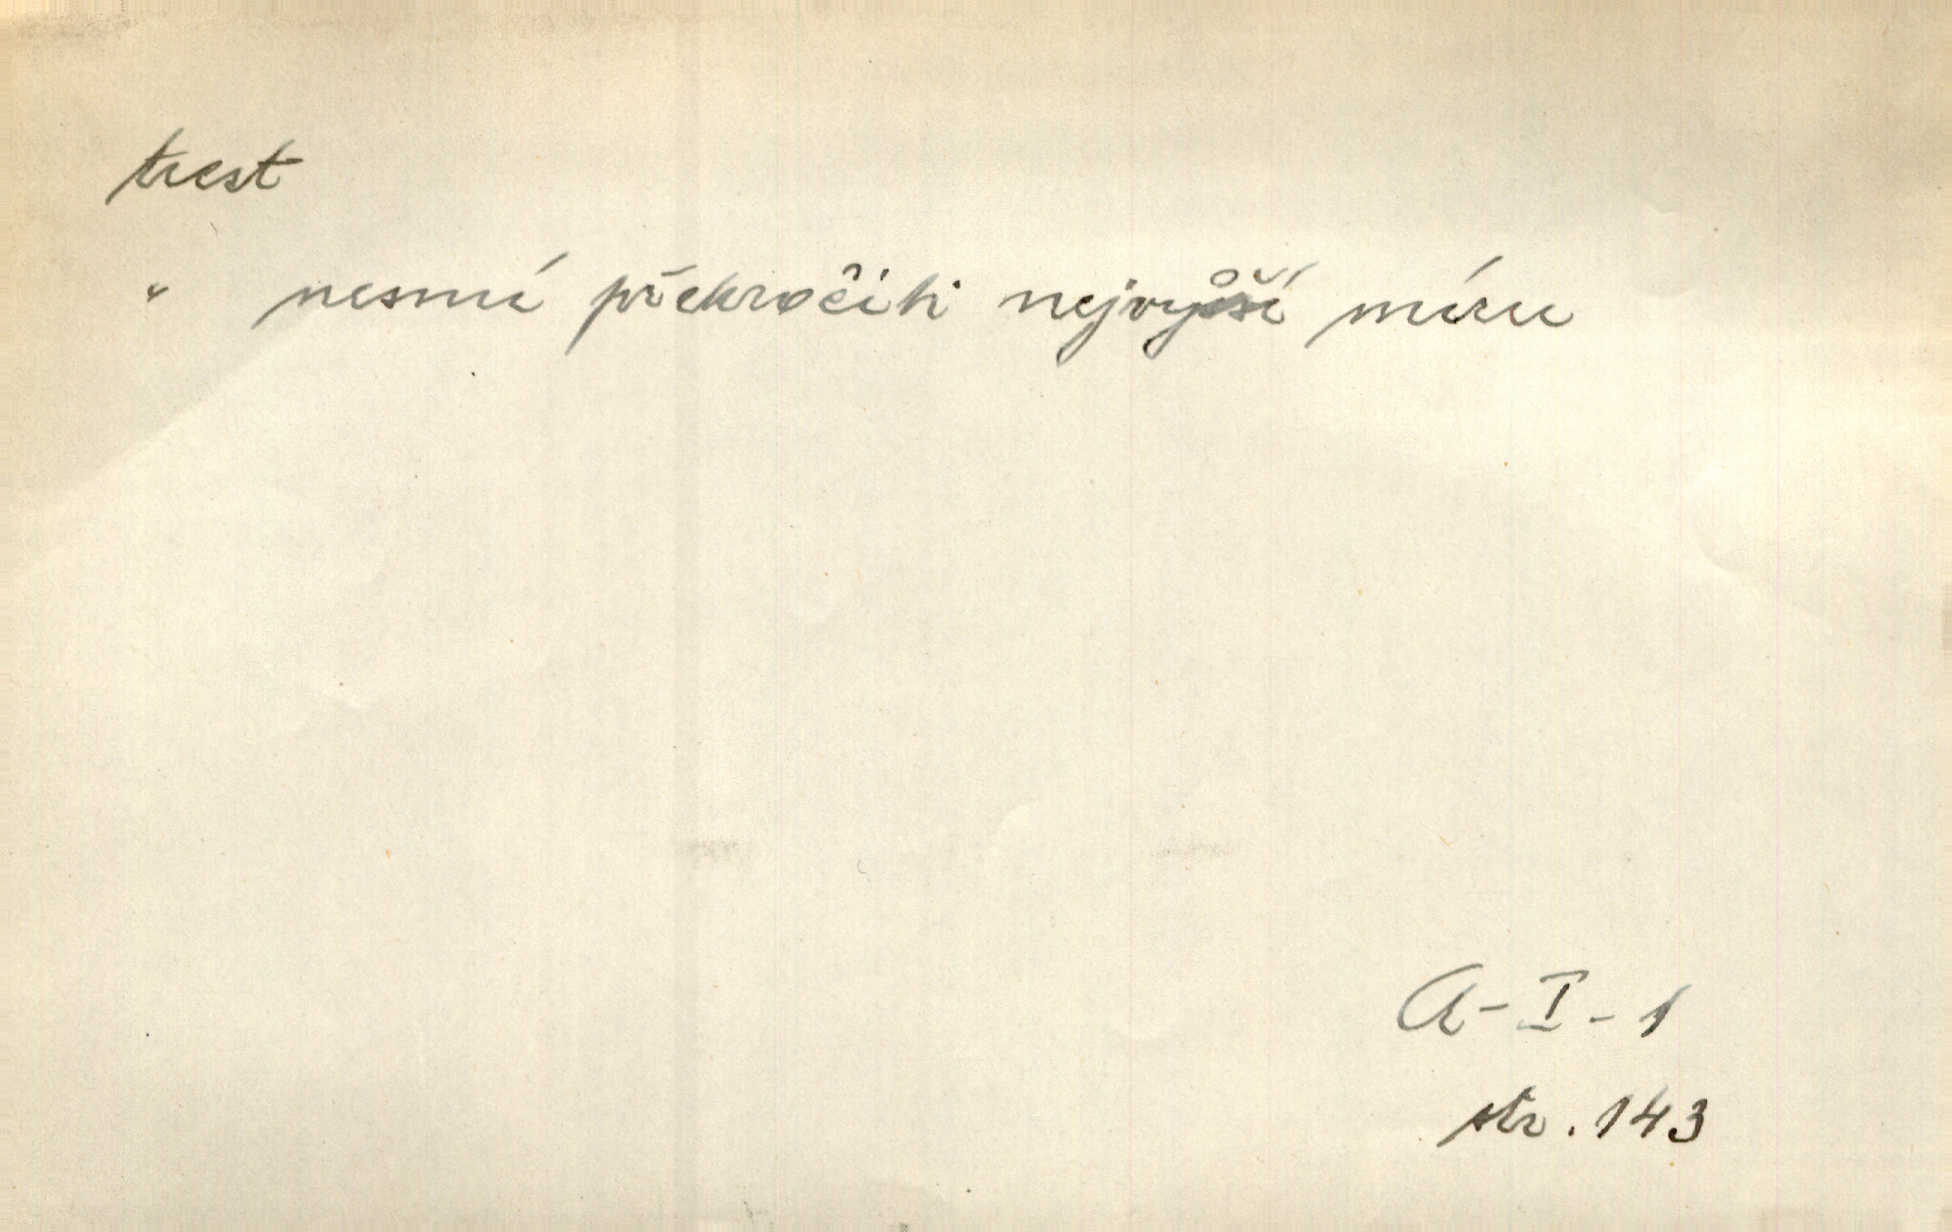 trest
" nesmí překročiti nejvyšší míru
A-I-1
str. 143